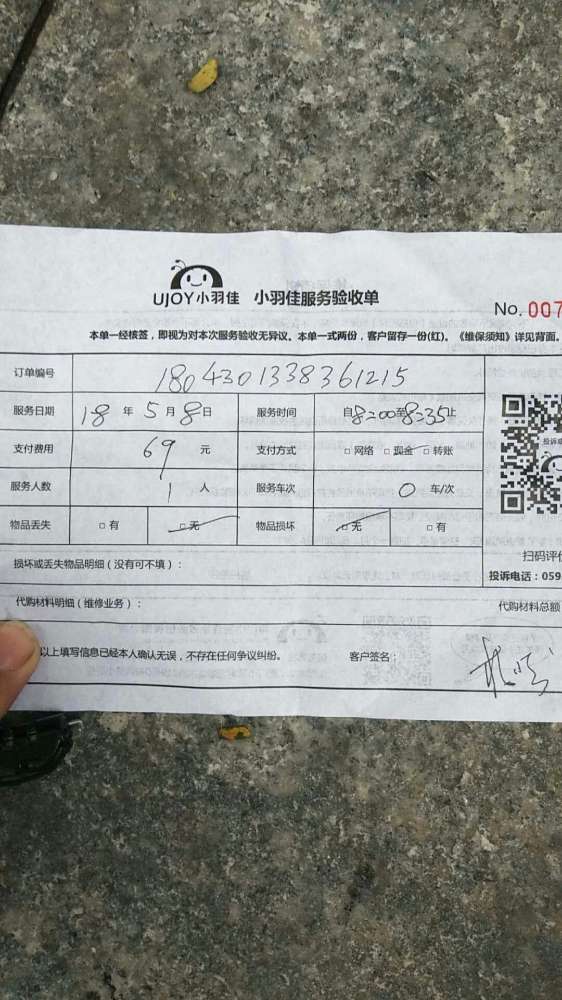 UJOY小羽佳 小羽佳服务验收单
No. 007
本单一经核签，即视为对本次服务验收无异议。本单一式两份，客户留存一份(红)。《维保须知》详见背面。
订单编号 1804301338361215
服务日期 18 年 5 月 8 日 服务时间 自8:00至8:35止
支付费用 69 元 支付方式 □网络 □现金 □转账
服务人数 1 人 服务车次 0 车/次
物品丢失 □有 □无 物品损坏 □无 □有
扫码评
损坏或丢失物品明细（没有可不填）：
投诉电话：059
代购材料明细（维修业务）： 代购材料总额
以上填写信息已经本人确认无误，不存在任何争议纠纷。 客户签名：